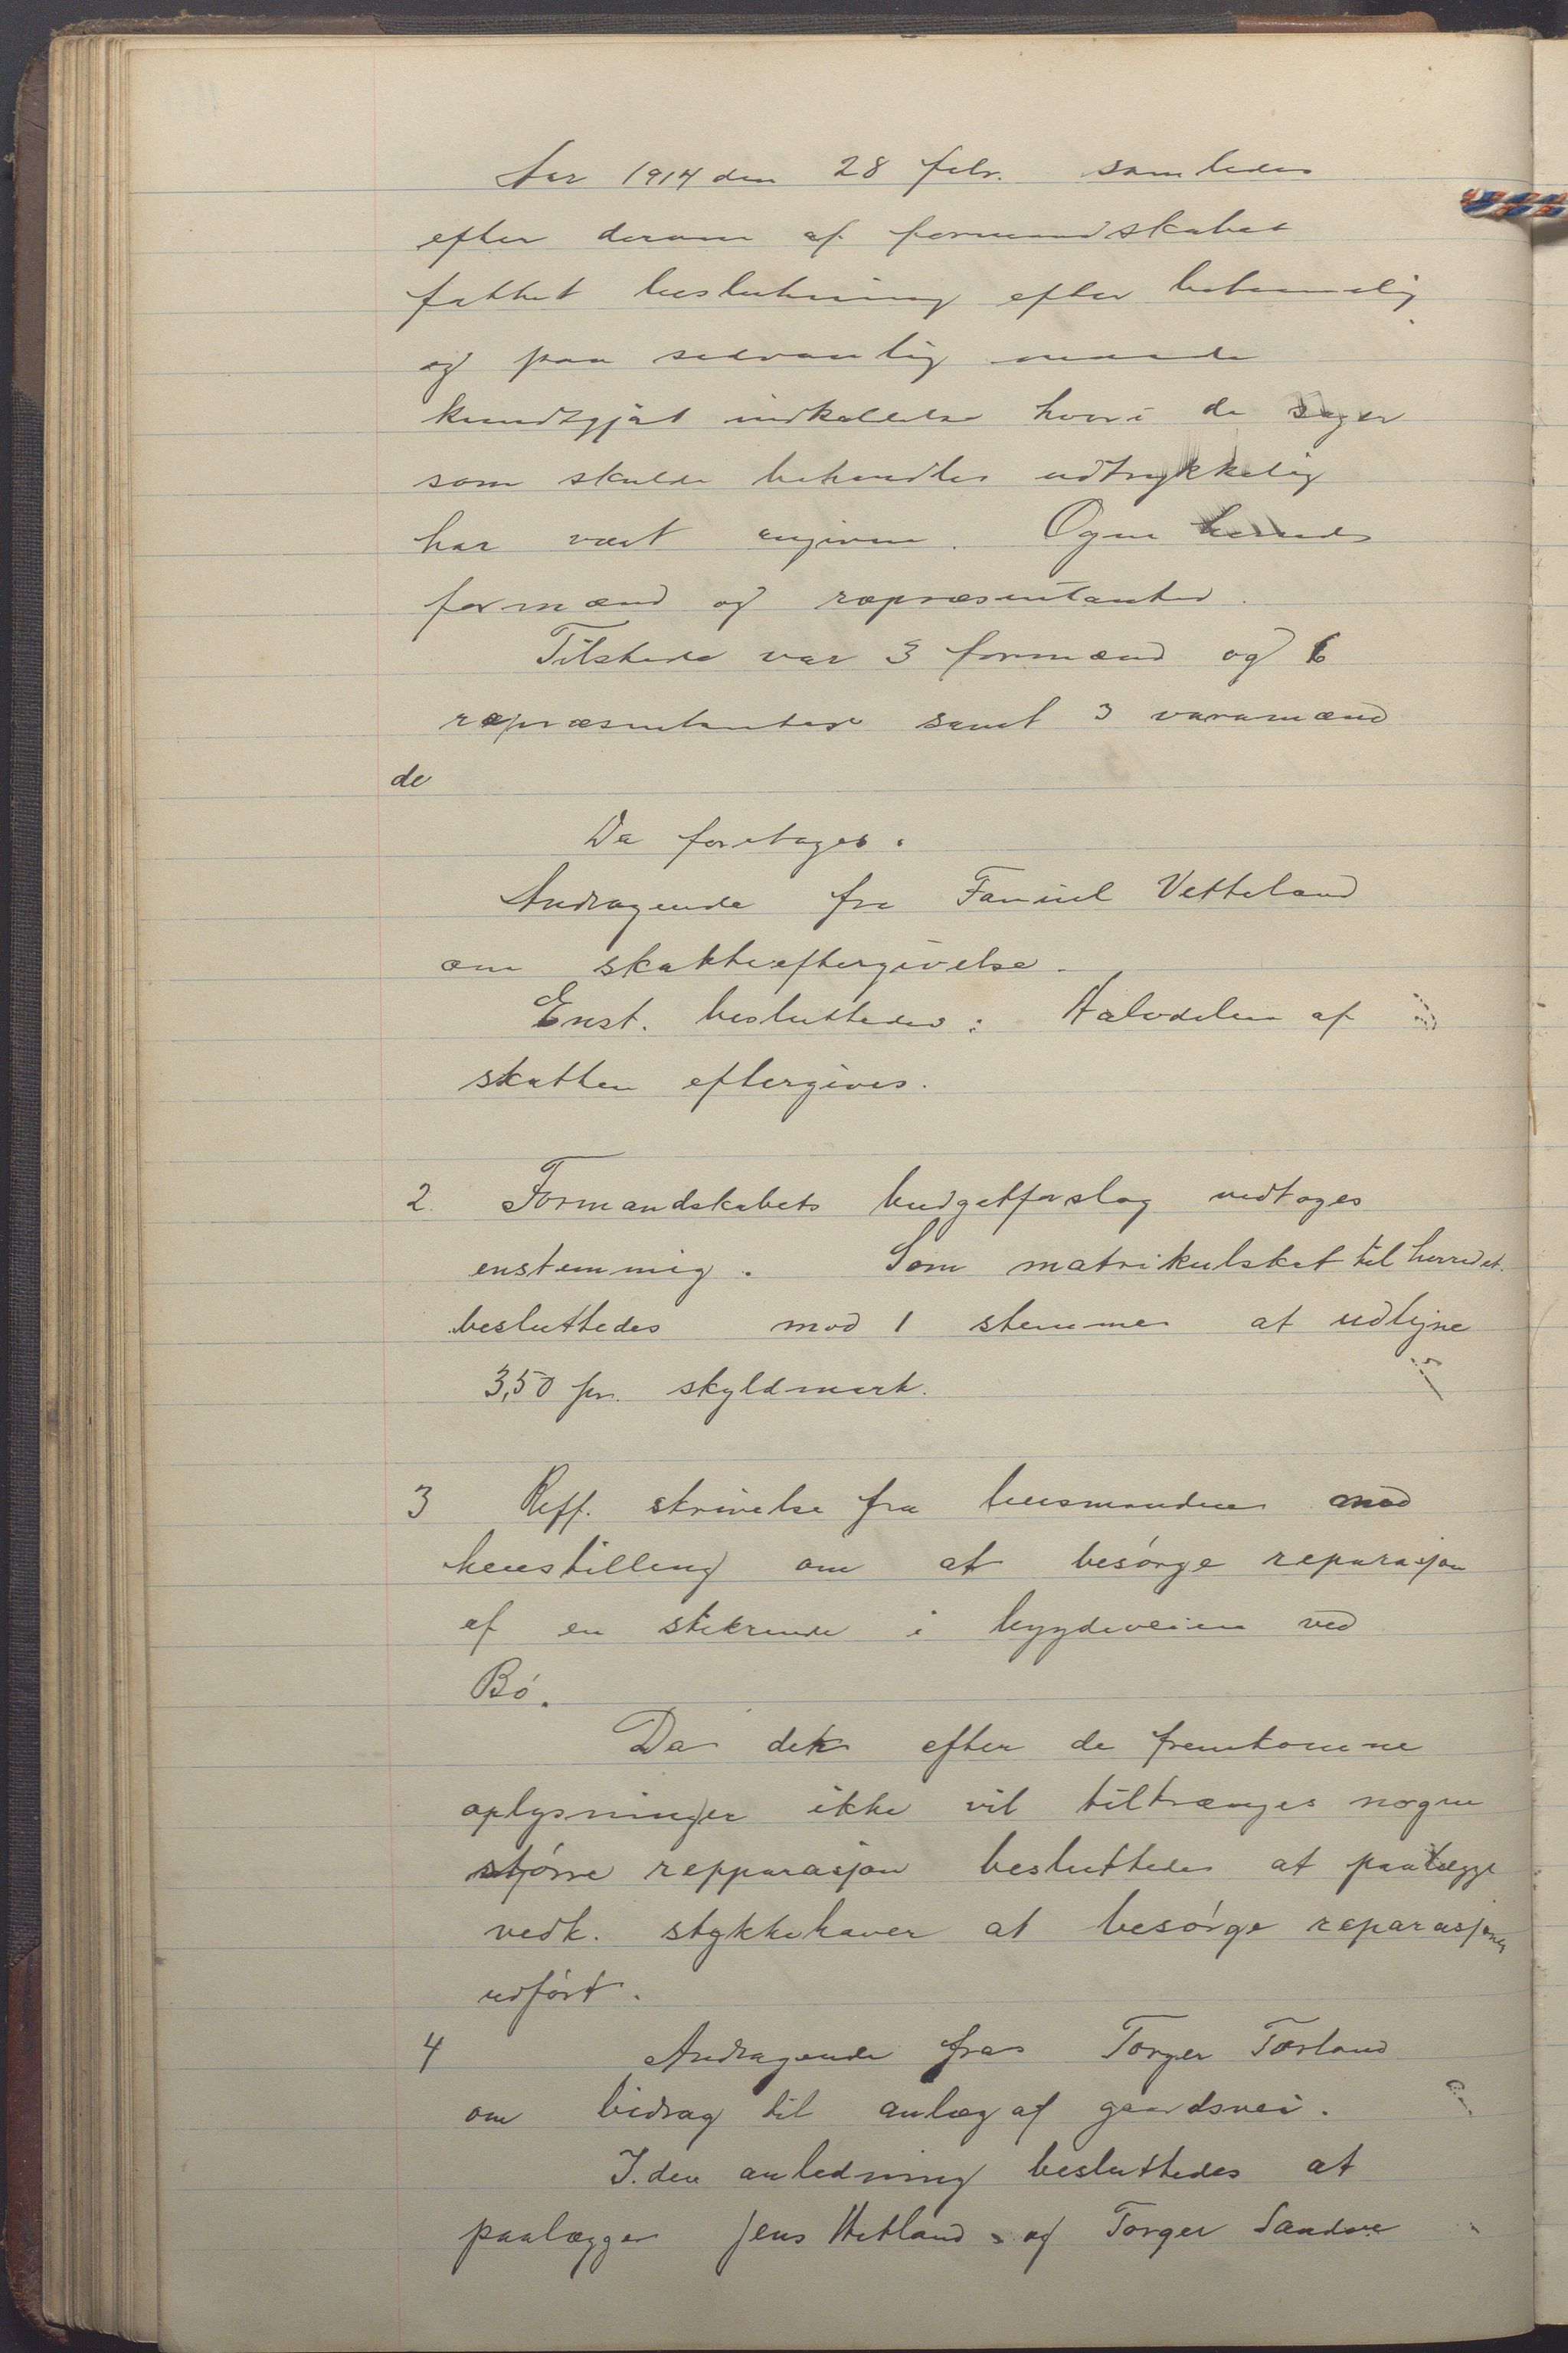 Aar 1914 den 28 febr. samledes
efter derom af formandskabet
fattet beslutning efter betimelig
og paa sedvanlig maade
kundgjort indkallelse hvori de sager
som skulde behandles udtrykkelig
har vært angiven. Ogne herreds
formænd og repræsentanter.
Tilstede var 3 formænd og 6
repræsentanter samt 3 varamænd
de
Da foretages.
Andragende fra Faniuel Vetteland
om skatteeftergivelse.
Enst. besluttedes: Halvdelen af
skatten eftergives.
2. Formandskabets budgetforslag vedtoges
enstemmig. Som matrikulskat til herredet
besluttedes mod 1 stemme at udligne
3,50 pr. skyldmark.
3 Reff. skrivelse fra lensmanden med
henstilling om at besørge reparasjon
af en stikrende i bygdeveien ved
Bø.
Da det efter de fremkomne
oplysninger ikke vil tiltrænges nogen
større repparasjon besluttedes at paalægge
vedk. stykkehaver at besørge reparasjonen
udført.
4 Andragende fra Torger Torland
om bidrag til anlæg af gaardsvei.
I den anledning besluttedes at
paalægge Jens Hetland og Torger Sandve